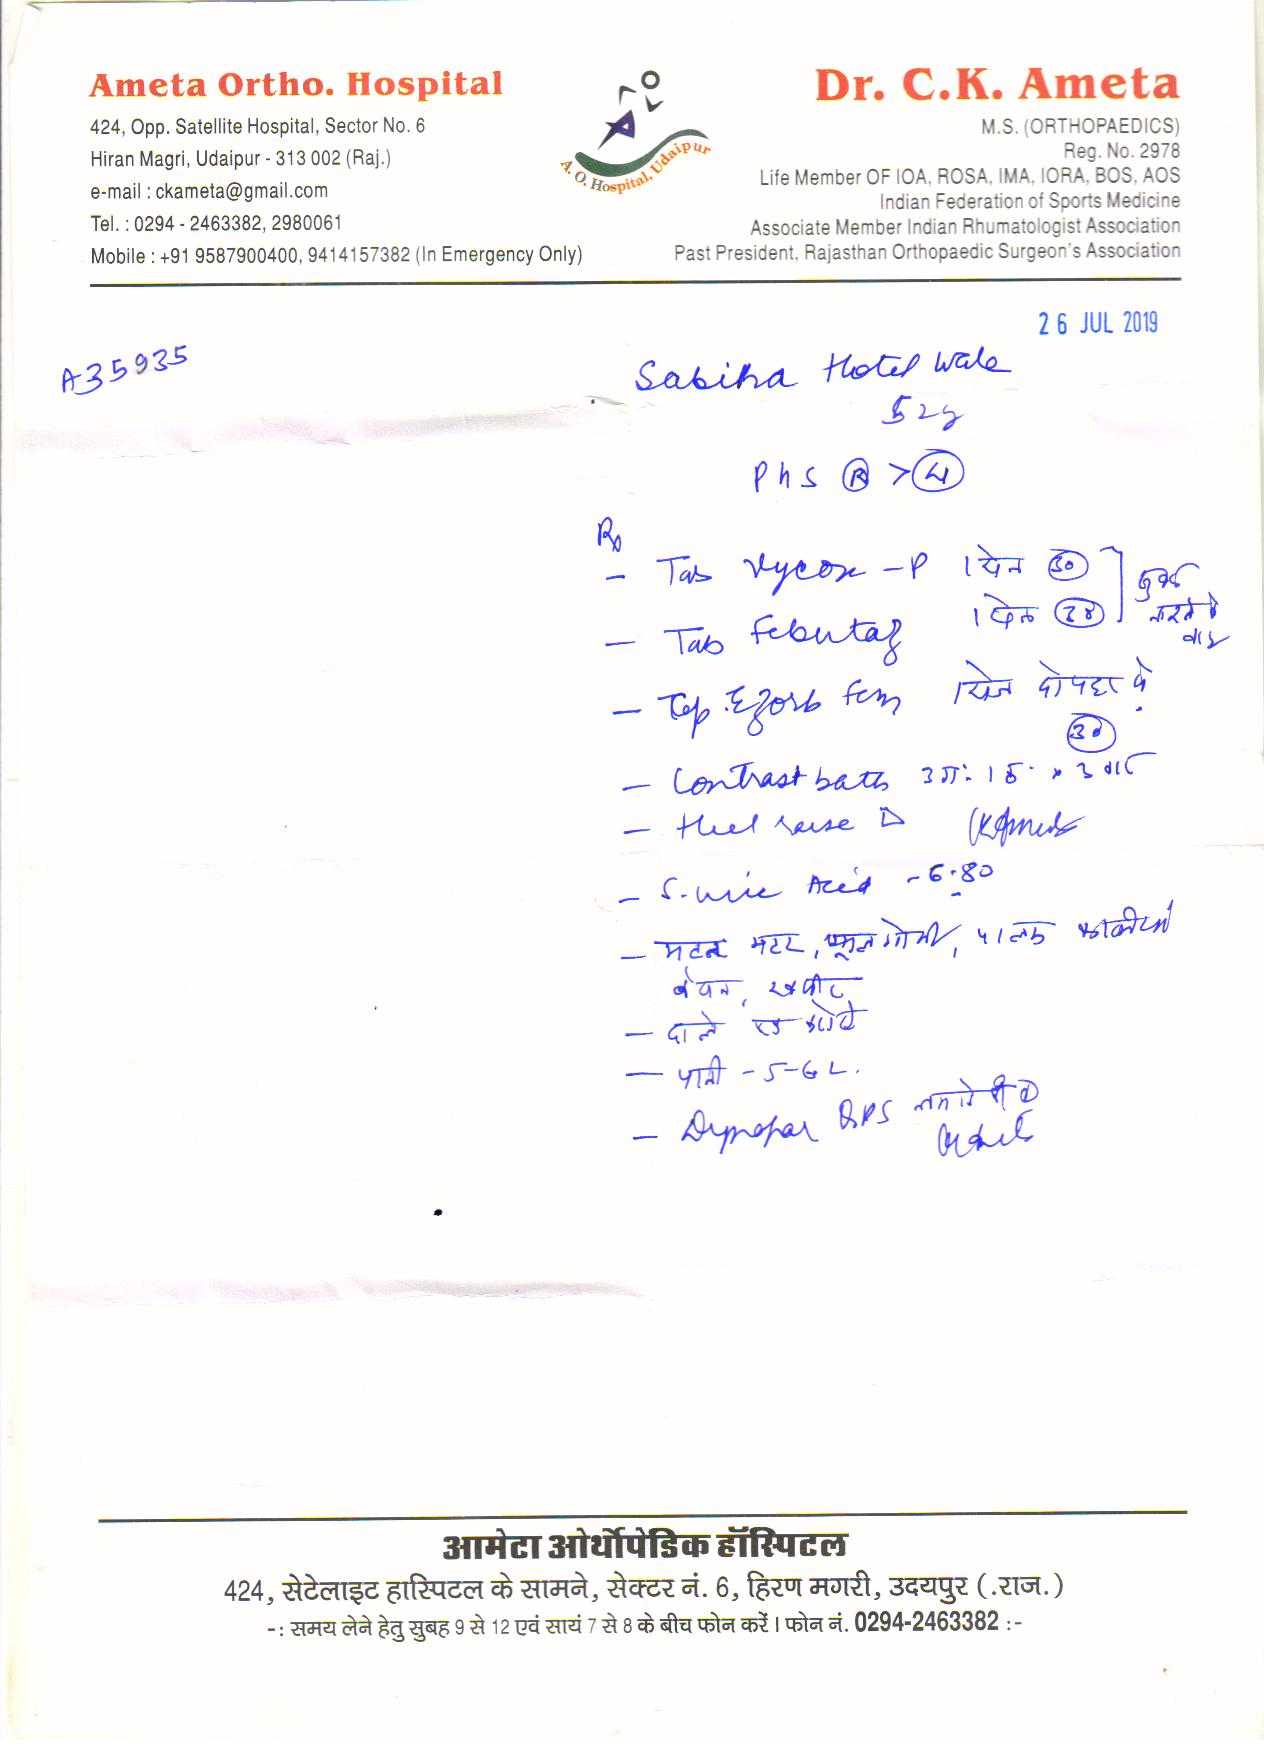 Ameta Ortho. Hospital
424, Opp. Satellite Hospital, Sector No. 6
Hiran Magri, Udaipur - 313 002 (Raj.)
e-mail : ckameta@gmail.com
Tel. : 0294 - 2463382, 2980061
Mobile : +91 9587900400, 9414157382 (In Emergency Only)
A. O. Hospital, Udaipur
Dr. C.K. Ameta
M.S. (ORTHOPAEDICS)
Reg. No. 2978
Life Member OF IOA, ROSA, IMA, IORA, BOS, AOS
Indian Federation of Sports Medicine
Associate Member Indian Rhumatologist Association
Past President, Rajasthan Orthopaedic Surgeon's Association
26 JUL 2019
A35935
Sabiha Hotel Wale
52y
PhS R >
Rx
- Tab Vycox - P 1
- Tab Febutaz 1
- Cap. Ezorb Fem 1 दोपहर के
30
- Contrast bath 3
- Heel raise
- S. Uric Acid - 6.80
- मटन मटर, फूल गोभी, पालक
बेंगन,
- दाले
- पानी - 5-6 L.
- Dynapar QPS
आमेटा ओर्थोपेडिक हॉस्पिटल
424, सेटेलाइट हास्पिटल के सामने, सेक्टर नं. 6, हिरण मगरी, उदयपुर (.राज.)
-: समय लेने हेतु सुबह 9 से 12 एवं सायं 7 से 8 के बीच फोन करें । फोन नं. 0294-2463382 :-